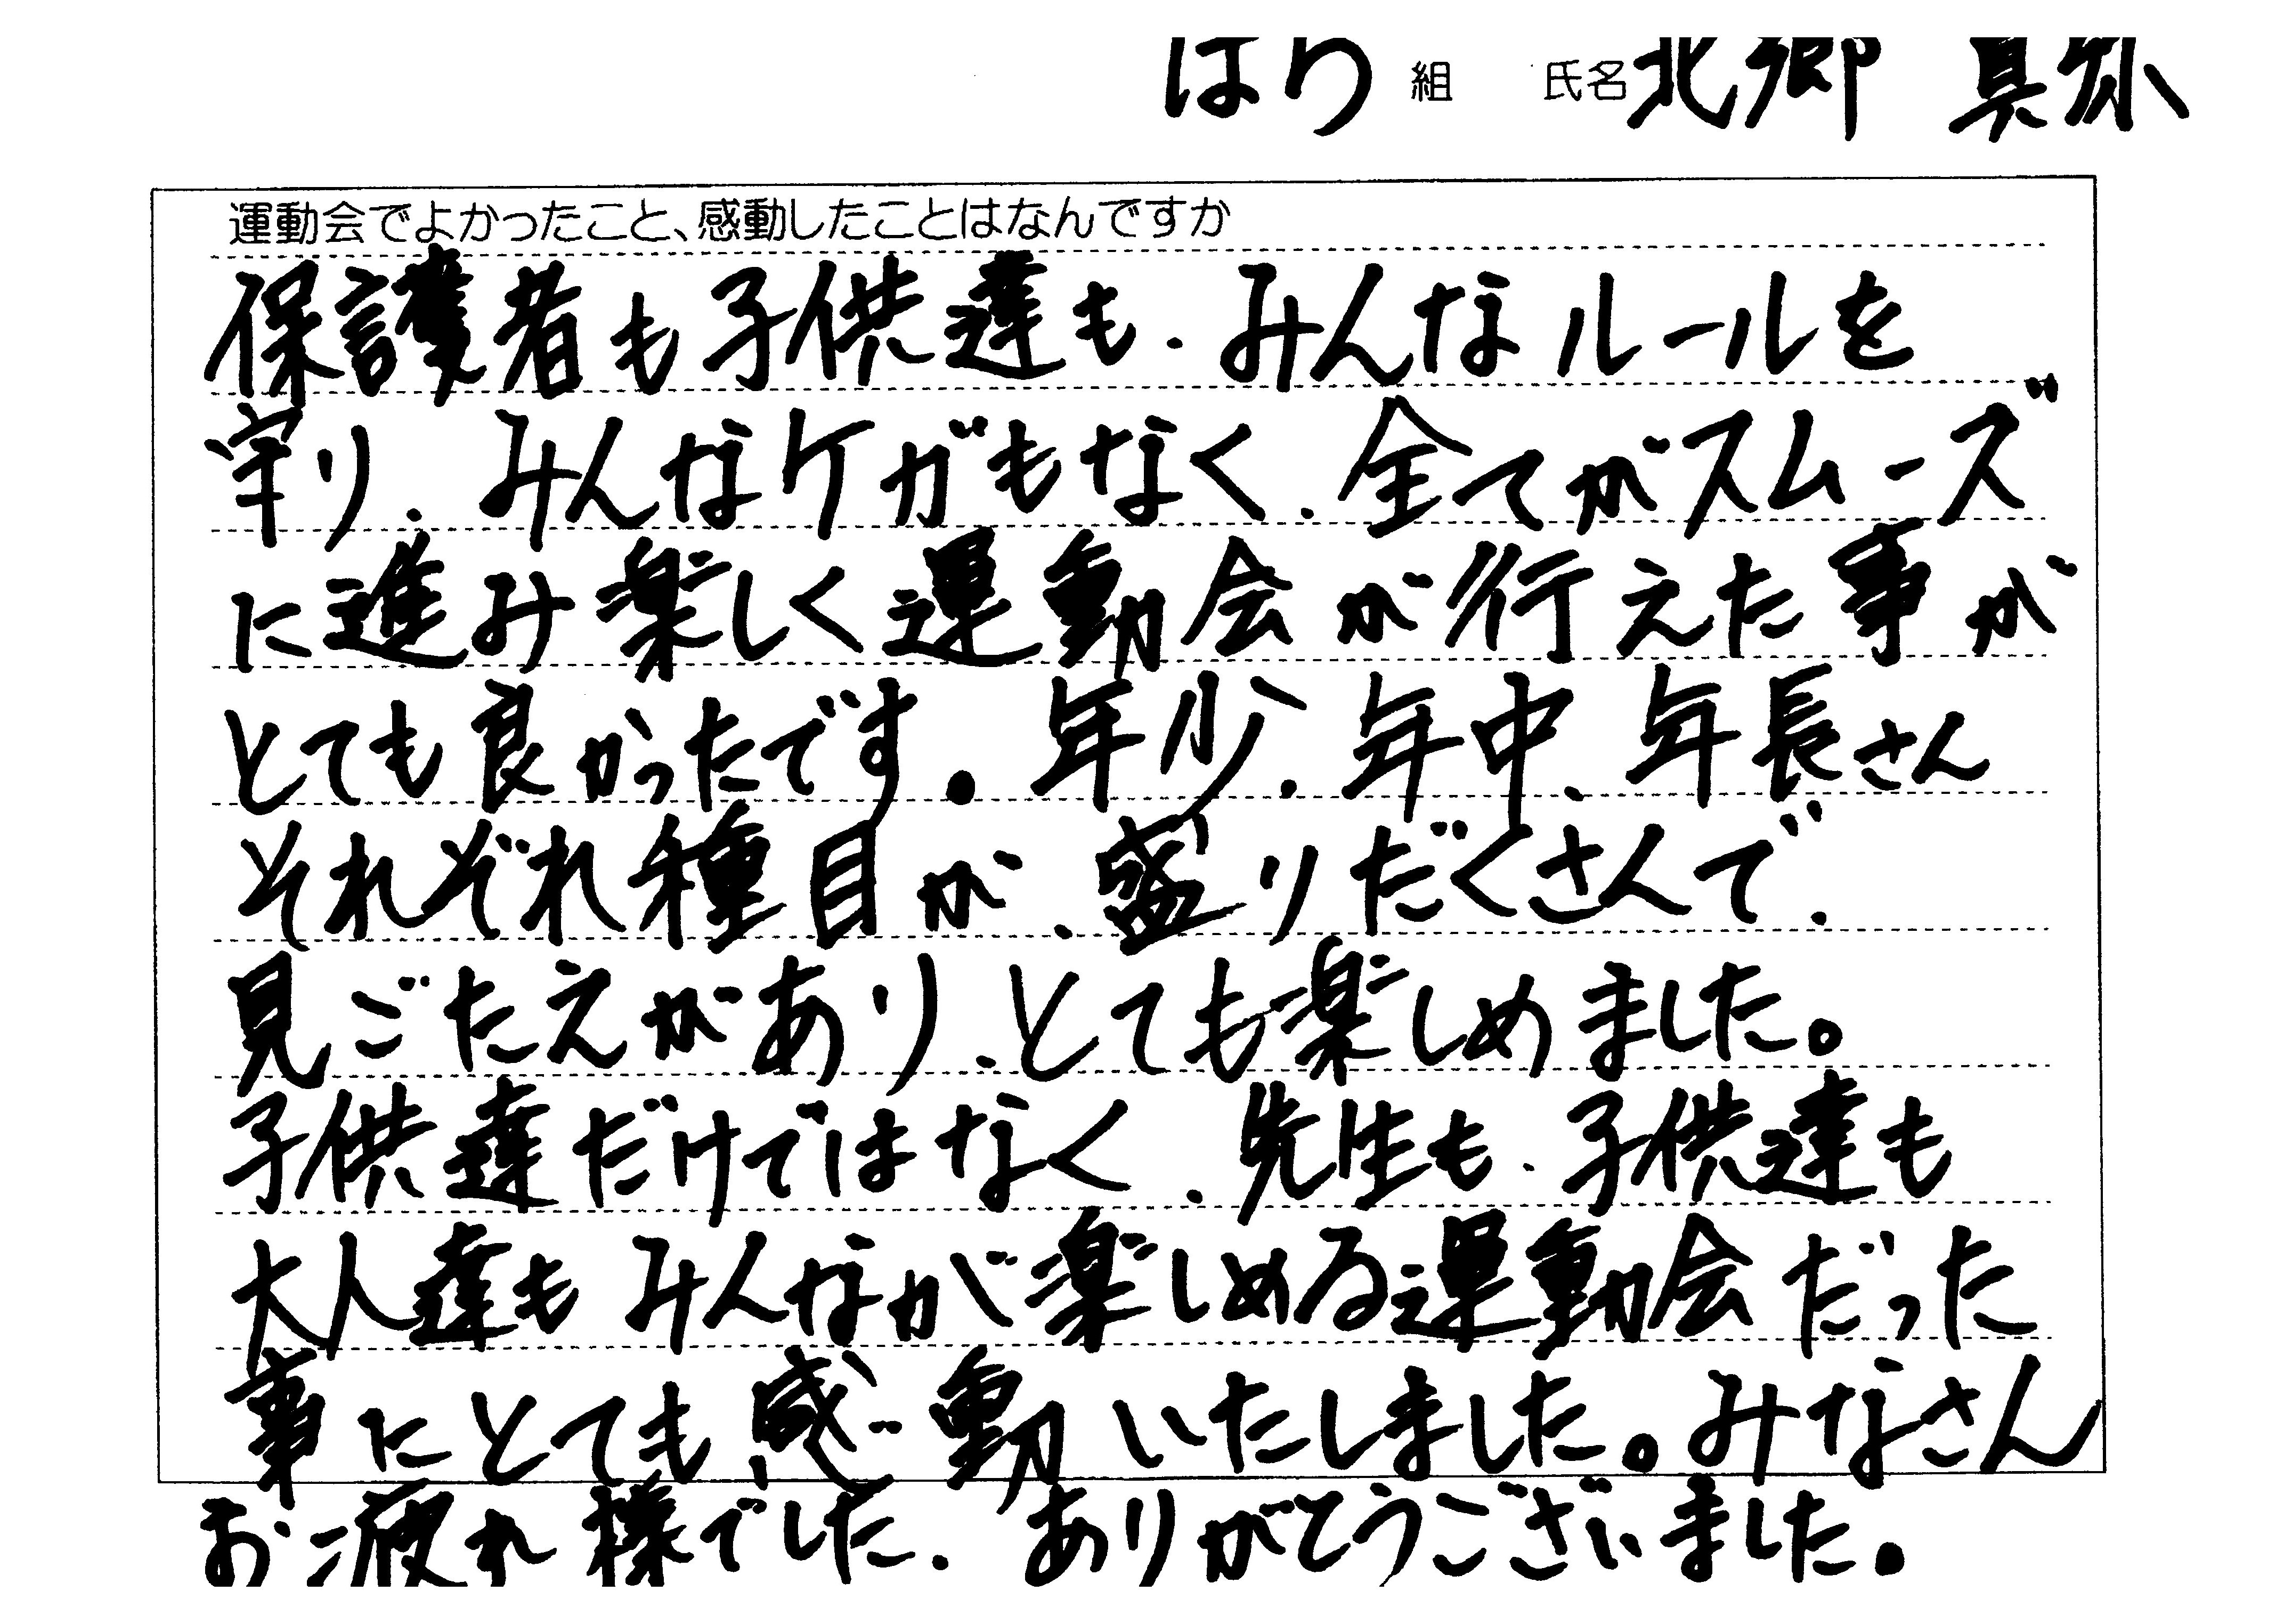 ほり 組 氏名 北郷 真弥
運動会でよかったこと、感動したことはなんですか
保護者も子供達も、みんなルールを
守り、みんなケガもなく、全てがスムーズ
に進み楽しく運動会が行えた事が
とても良かったです。年少、年中、年長さん
それぞれ種目が、盛りだくさんで、
見ごたえがあり、とても楽しめました。
子供達だけではなく、先生も、子供達も
大人達もみんなが楽しめる運動会だった
事にとても感動いたしました。みなさん
お疲れ様でした。ありがとうございました。